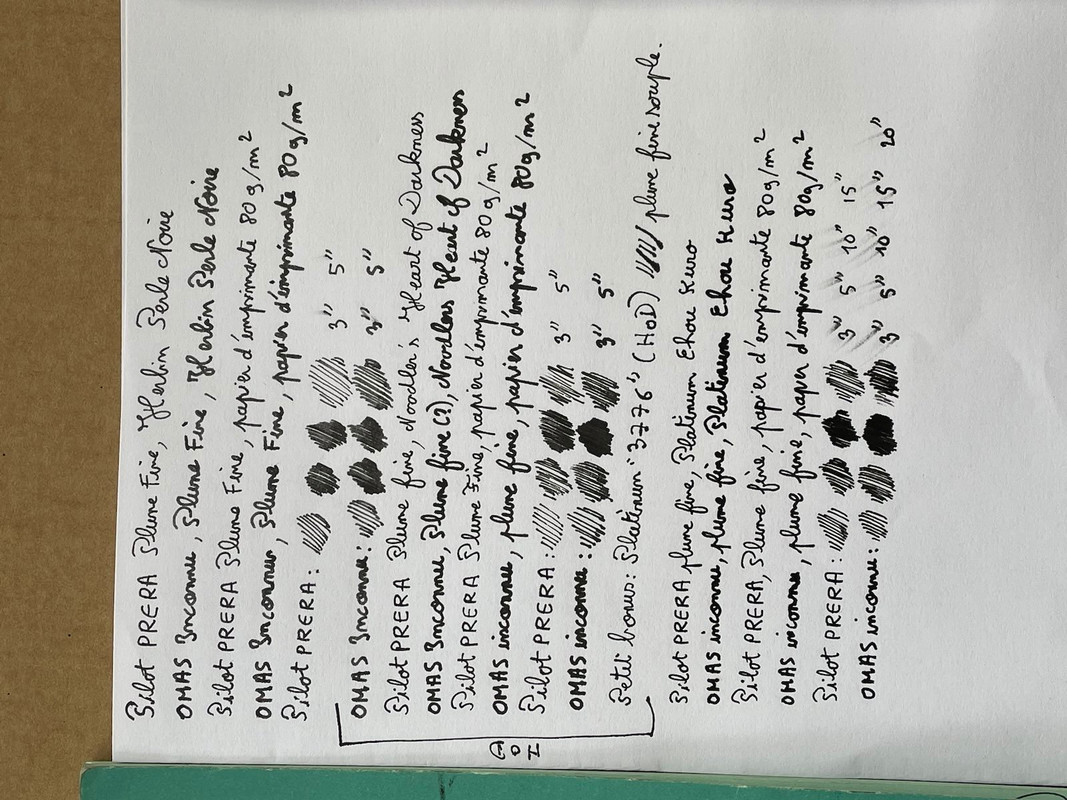 Pilot PRERA Plume Fine, Herbin Perle Noire
OMAS Inconnu, Plume Fine, Herbin Perle Noire
Pilot PRERA Plume Fine, papier d'imprimante 80 g/m²
OMAS Inconnu, Plume Fine, papier d'imprimante 80g/m²
Pilot PRERA : 3" 5"
OMAS Inconnu : 3" 5"
Pilot PRERA Plume fine, Noodler's Heart of Darkness
OMAS Inconnu, Plume fine (?), Noodlers Heart of Darkness
Pilot PRERA Plume Fine, papier d'imprimante 80 g/m²
OMAS inconnu, plume fine, papier d'imprimante 80g/m²
Pilot PRERA : 3" 5"
OMAS inconnu : 3" 5"
Petit bonus : Platinum "3776" (HoD) plume fine souple.
HOD
Pilot PRERA plume fine, Platinum Chou Kuro
OMAS inconnu, plume fine, Platinum Chou Kuro
Pilot PRERA, Plume fine, papier d'imprimante 80g/m²
OMAS inconnu, plume fine, papier d'imprimante 80g/m²
Pilot PRERA : 3" 5" 10" 15"
OMAS inconnu : 3" 5" 10" 15" 20"